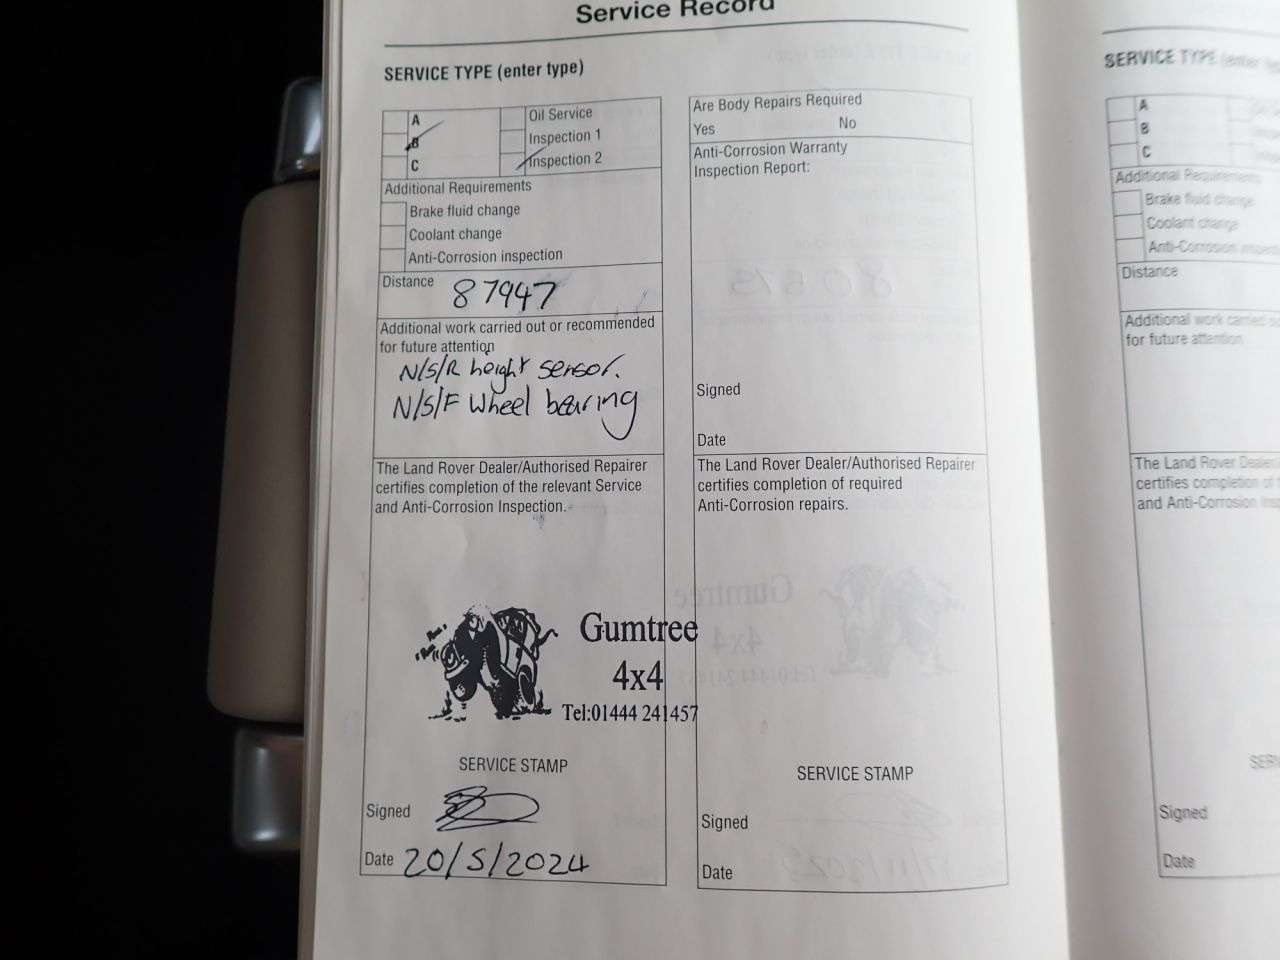 Service Record
SERVICE TYPE (enter type)
A
B
C
Oil Service
Inspection 1
Inspection 2
Additional Requirements
Brake fluid change
Coolant change
Anti-Corrosion inspection
Distance
87947
Additional work carried out or recommended
for future attention
N/S/R height sensor.
N/S/F Wheel bearing
The Land Rover Dealer/Authorised Repairer
certifies completion of the relevant Service
and Anti-Corrosion Inspection.
Gumtree
4x4
Tel:01444 241457
SERVICE STAMP
Signed
Date 20/5/2024
Are Body Repairs Required
Yes No
Anti-Corrosion Warranty
Inspection Report:
Signed
Date
The Land Rover Dealer/Authorised Repairer
certifies completion of required
Anti-Corrosion repairs.
SERVICE STAMP
Signed
Date
SERVICE TYPE (enter
A
B
C
Additional Requirements
Brake fluid change
Coolant change
Anti-Corrosion
Distance
Additional work carried
for future attention
The Land Rover
certifies completion of
and Anti-Corrosion
Signed
Date